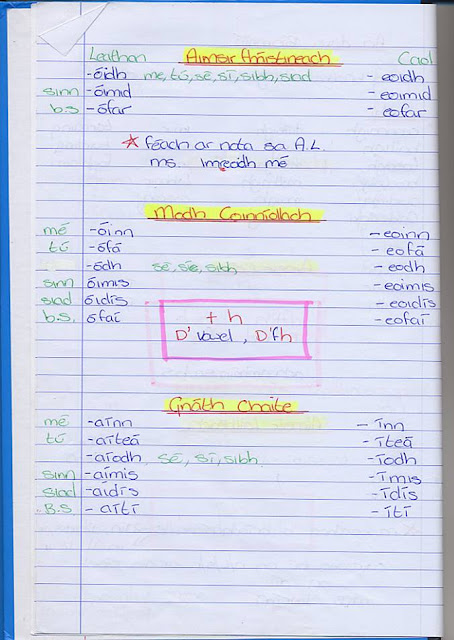 Leathan Aimsir Fháistineach Caol
-óidh mé, tú, sé, sí, sibh, siad -eoidh
sinn -óimid -eoimid
b.s -ófar -eofar
* féach ar nóta sa A.L.
ms. imreoidh mé
Modh Coinníollach
mé -óinn -eoinn
tú -ófá -eofá
-ódh sé, sí, sibh -eodh
sinn óimis -eoimis
siad óidís -eoidís
b.s. ófaí -eofaí
+ h
D' vowel, D'fh
Gnáth Chaite
mé -aínn -ínn
tú -aíteá -íteá
-aíodh sé, sí, sibh -íodh
sinn -aímis -ímis
siad -aídís -ídís
B.S -aítí -ítí